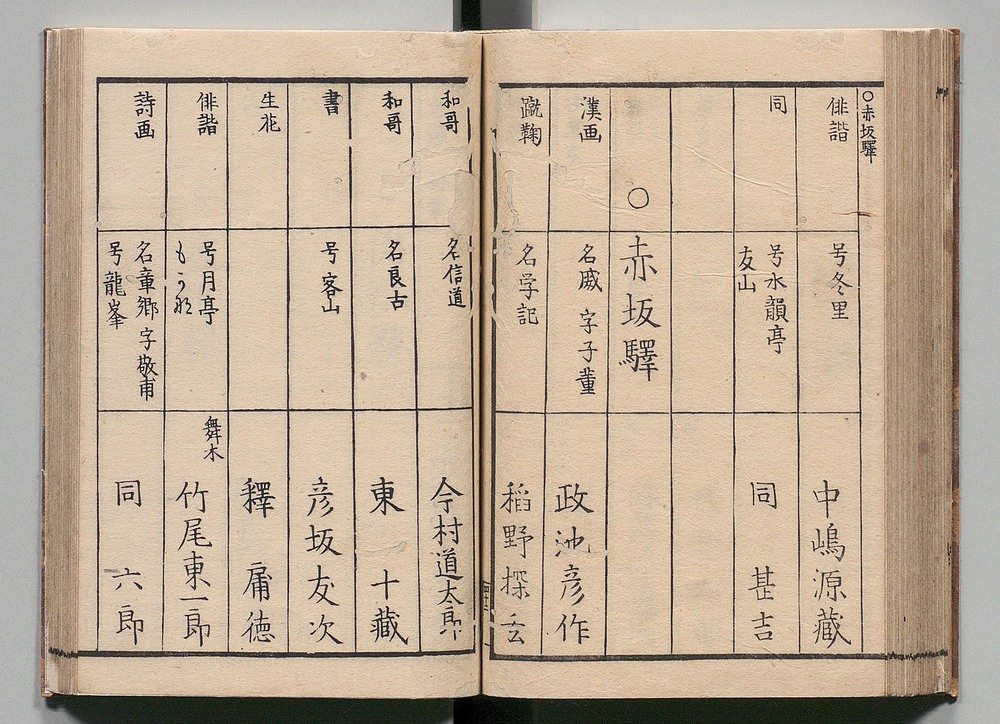 〇赤坂驛
俳諧
号冬里
中嶋源藏
同
号水韻亭
友山
同 甚吉
〇
赤坂驛
漢画
名威 字子菫
政池彦作
蹴鞠
名学記
稻野探玄
和哥
名信道
今村道太郎
和哥
名良古
東 十藏
書
号客山
彦坂友次
生花
釋 庸徳
俳諧
号月亭
舞木
竹尾東一郎
詩画
名章郷 字敬甫
号龍峯
同 六郎